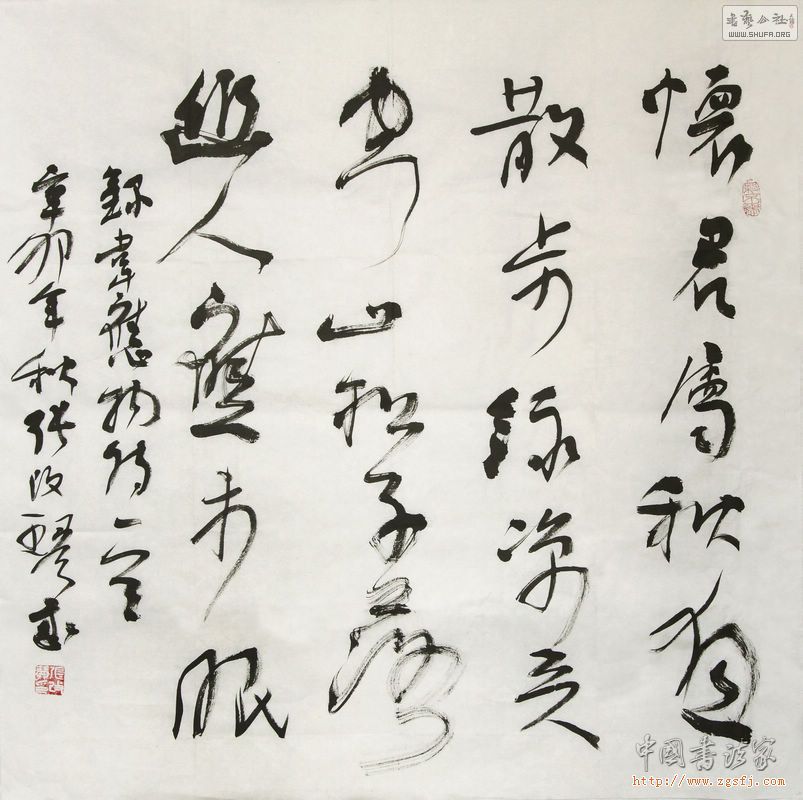 懷君屬秋夜
散步詠涼天
空山松子落
幽人應未眠
錄韋應物詩一首
辛卯年秋張改琴書
書藝公社
WWW.SHUFA.ORG
中國書法家
http://www.zgsfj.com